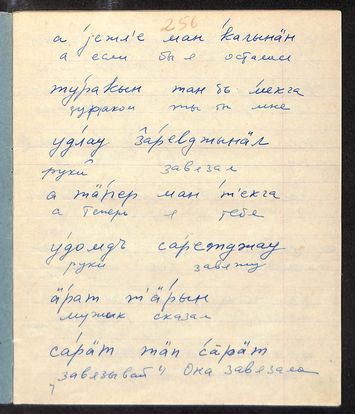 256
а jежл'е ман ка́гынӓн
а если бы я остался
ту́ракын тан бъ ме́кга
дураком ты бы мне
уд́лау за́ревджынӓл
руки завязал
а тӓпер ман т'екга
а теперь я тебе
у́домдъ са́ремджау
руки завяжу
ӓ́рат т'ӓ́рын
мужик сказал
са́рӓт тӓп са́рӓт
"завязывай" она завязала